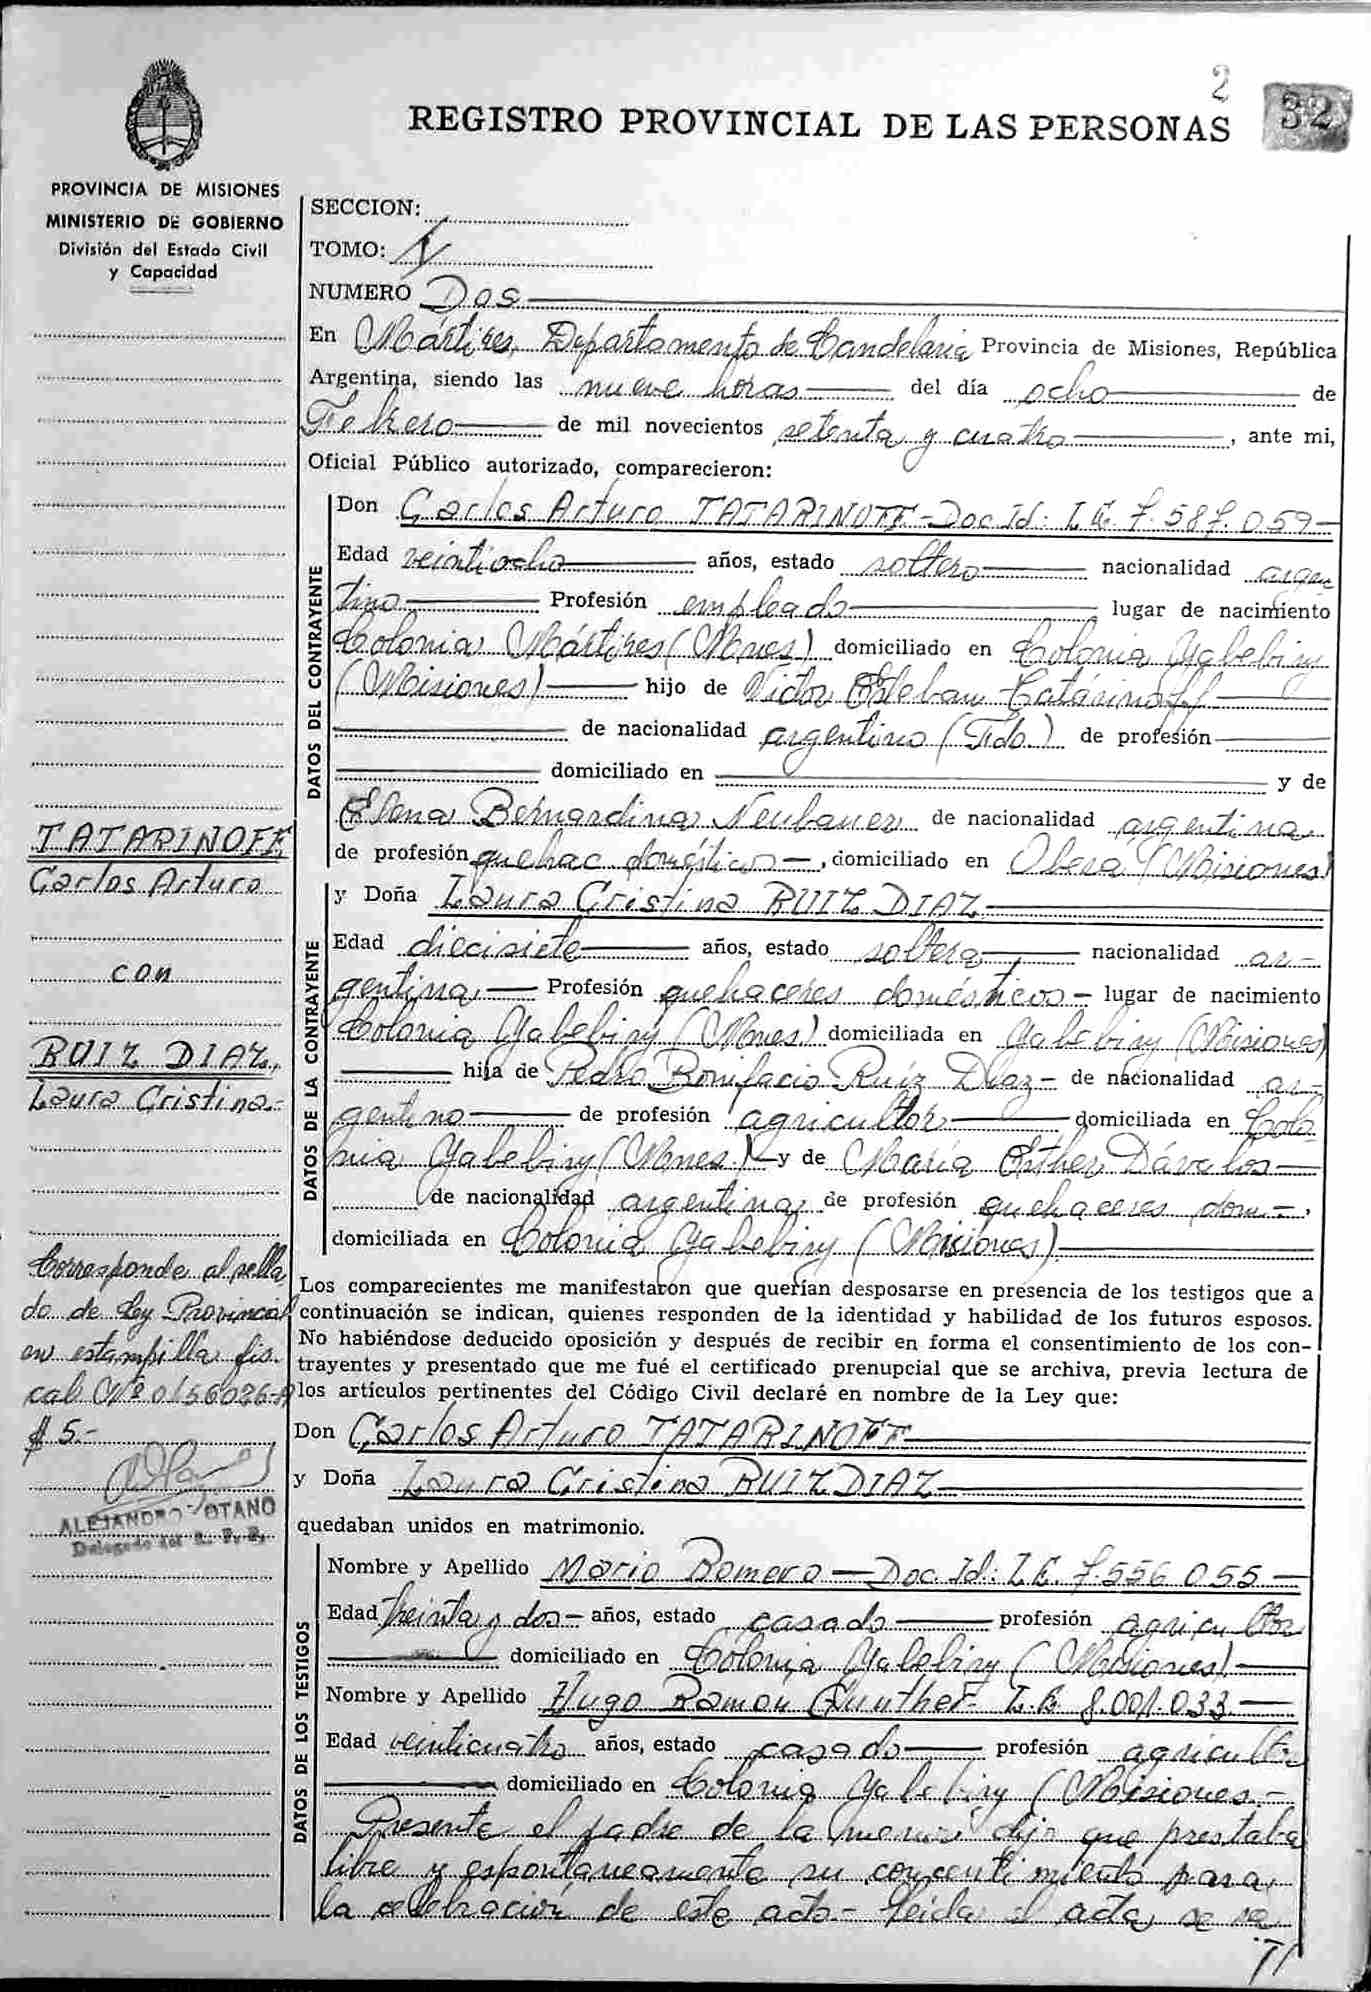 2
32
REGISTRO PROVINCIAL DE LAS PERSONAS
PROVINCIA DE MISIONES
MINISTERIO DE GOBIERNO
División del Estado Civil
y Capacidad
SECCION:
TOMO: 1
NUMERO Dos
En Mártires, Departamento de Candelaria Provincia de Misiones, República
Argentina, siendo las nueve horas del día ocho de
Febrero de mil novecientos setenta y cuatro, ante mi,
Oficial Público autorizado, comparecieron:
DATOS DEL CONTRAYENTE
Don Carlos Arturo TATARINOFF - Doc Id: L.E. 7.587.059
Edad veintiocho años, estado soltero nacionalidad argen
tino Profesión empleado lugar de nacimiento
Colonia Mártires (Mnes) domiciliado en Colonia Yabebiry
(Misiones) hijo de Victor Esteban Tatárinoff
de nacionalidad argentino (Fdo.) de profesión
domiciliado en y de
Elena Bernardina Neubauer de nacionalidad argentina
de profesión quehac domésticos -, domiciliado en Oberá (Misiones)
TATARINOFF,
Carlos Arturo
con
RUIZ DIAZ,
Laura Cristina.-
DATOS DE LA CONTRAYENTE
y Doña Laura Cristina RUIZ DIAZ
Edad diecisiete años, estado soltera nacionalidad ar-
gentina Profesión quehaceres domésticos - lugar de nacimiento
Colonia Yabebiry (Mnes) domiciliada en Yabebiry (Misiones)
hija de Pedro Bonifacio Ruíz Díaz - de nacionalidad ar-
gentino de profesión agricultor domiciliada en Colo
nia Yabebiry (Mnes) y de María Esther Dávalos
de nacionalidad argentina de profesión quehaceres dom -,
domiciliada en Colonia Yabebiry (Misiones)
Corresponde al sella
do de Ley Provincial
en estampilla fis.
cal Nº 0156026-A
$ 5.-
ALEJANDRO OTANO
Delegado del R. P. P.
Los comparecientes me manifestaron que querían desposarse en presencia de los testigos que a
continuación se indican, quienes responden de la identidad y habilidad de los futuros esposos.
No habiéndose deducido oposición y después de recibir en forma el consentimiento de los con-
trayentes y presentado que me fué el certificado prenupcial que se archiva, previa lectura de
los artículos pertinentes del Código Civil declaré en nombre de la Ley que:
Don Carlos Arturo TATARINOFF
y Doña Laura Cristina RUIZ DIAZ
quedaban unidos en matrimonio.
DATOS DE LOS TESTIGOS
Nombre y Apellido Mario Romero - Doc Id: L.E. 7.556.055
Edad treinta y dos - años, estado casado profesión agricultor
domiciliado en Colonia Yabebiry (Misiones)
Nombre y Apellido Hugo Ramón Gunther L.E. 8.001.033
Edad veinticuatro años, estado casado profesión agricultor
domiciliado en Colonia Yabebiry (Misiones.-
Presente el padre de la menor dijo que prestaba
libre y espontaneamente su concentimiento para
la celebración de este acto.- Leida el acta, se ra
//